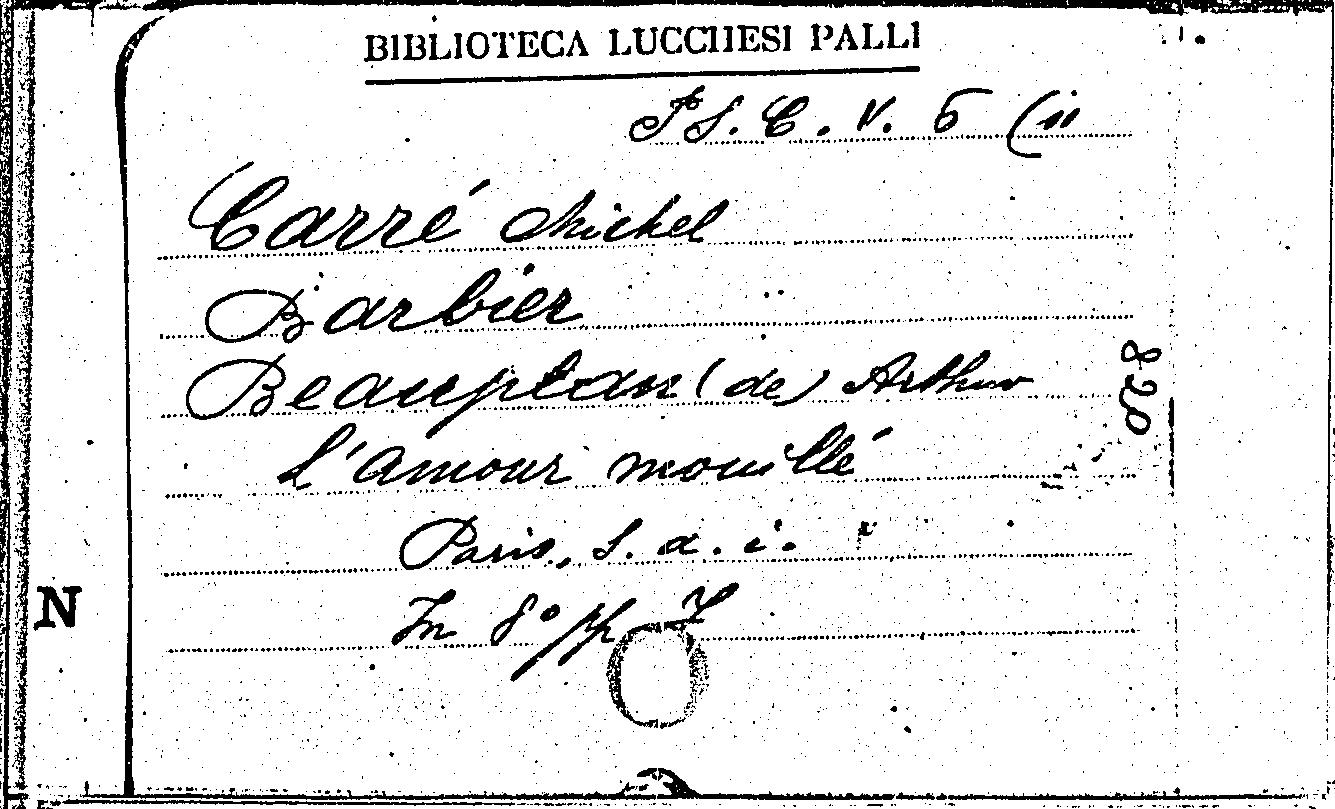 BIBLIOTECA LUCCHESI PALLI
S. C. V. 5 (11
Carré Michel
Barbier
Beauplan (de) Arthur
L'Amour mouillé
Paris, S. d. i.
In 8° pp
820
N